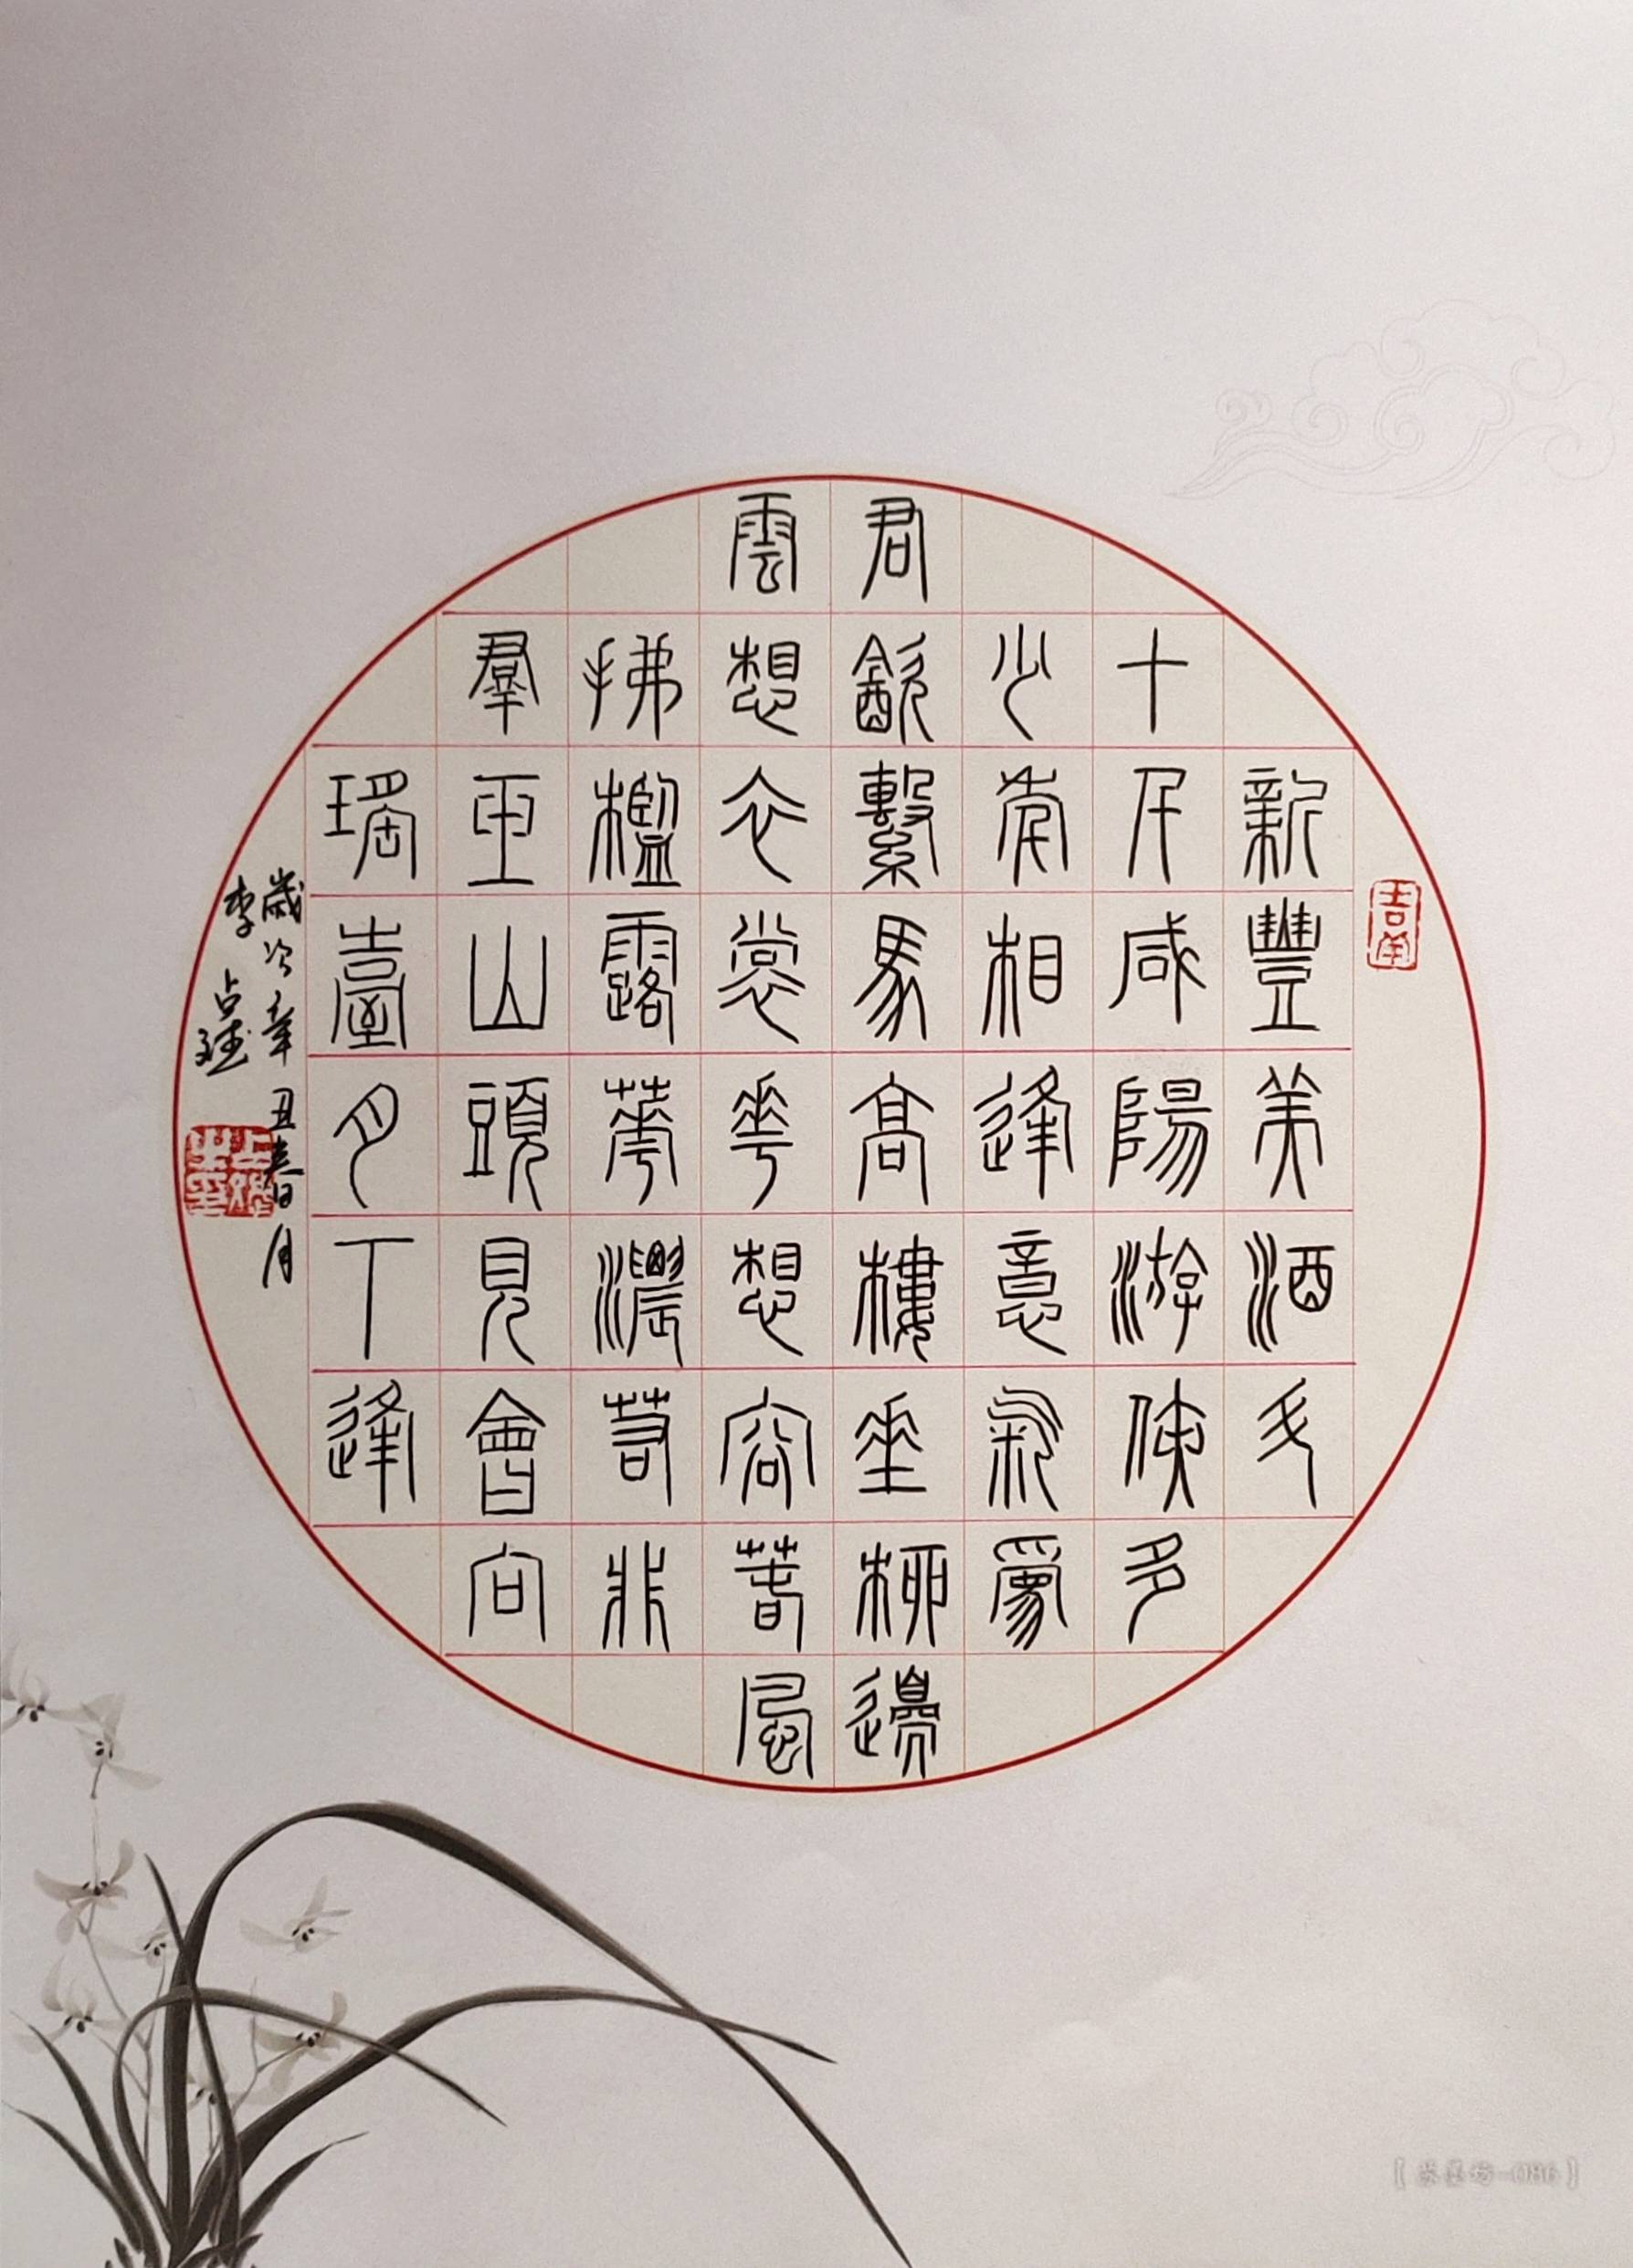 新豐美酒斗
十千咸陽游俠多
少年相逢意氣爲
君飲繫馬高樓垂柳邊
雲想衣裳花想容春風
拂檻露華濃若非
羣玉山頭見會向
瑤臺月下逢
歲次辛丑春月
李占